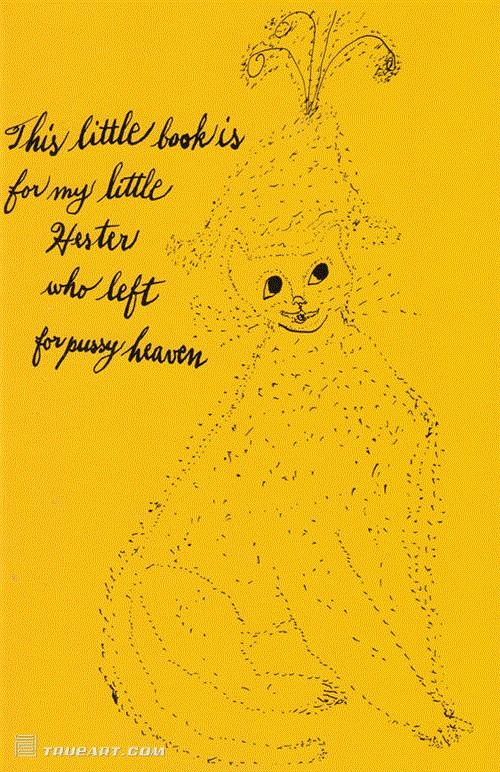 This little book is
for my little
Hester
who left
for pussy heaven
TRUEART.COM